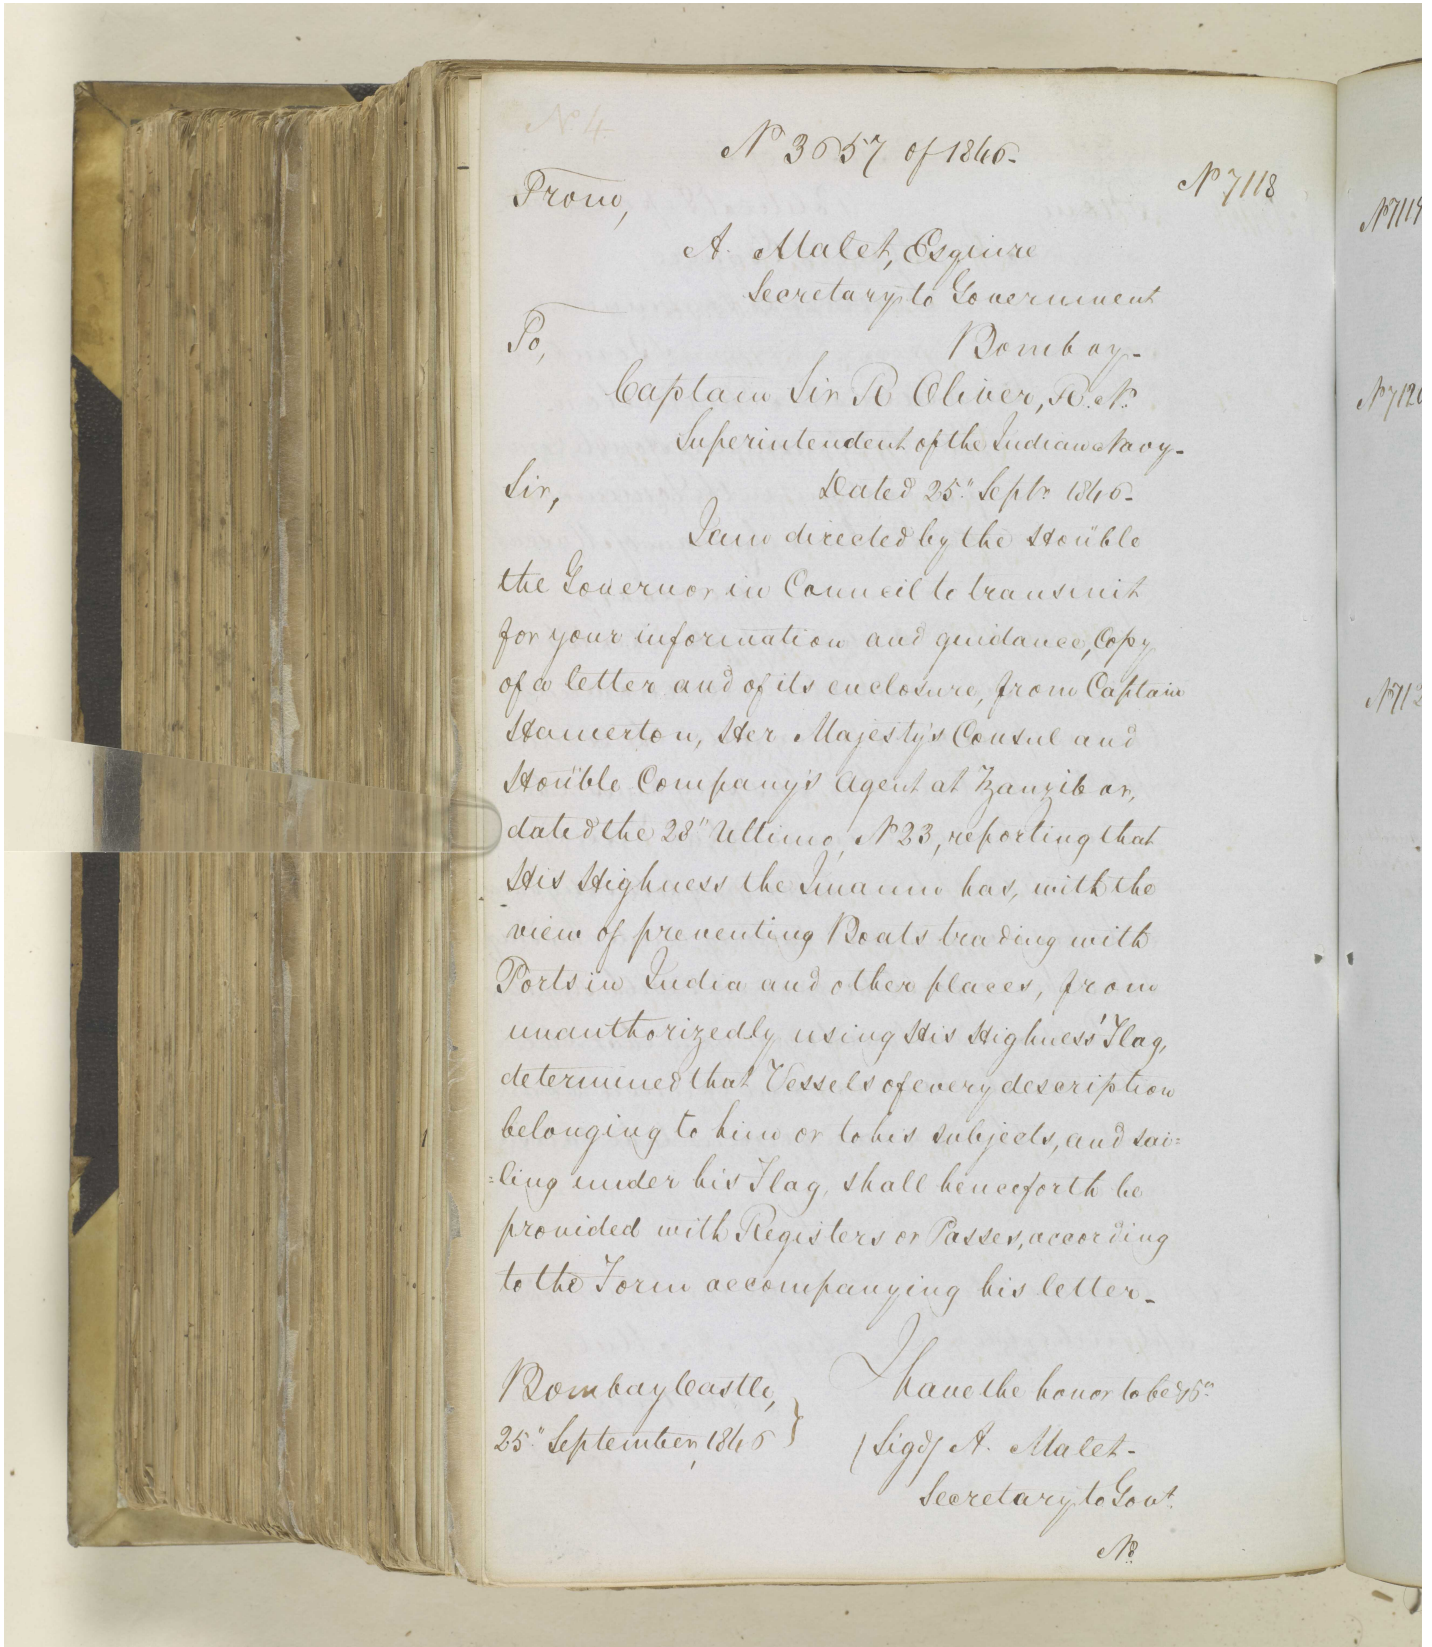 No 4
No 3657 of 1846-
No 7118
From,
A. Malet, Esquire
Secretary to Government
To,
Bombay-
Captain Sir R Oliver, R.N.
Superintendent of the Indian Navy-
Sir,
Dated 25" Septr. 1846-
I am directed by the Hon'ble
the Governor in Council to transmit
for your information and guidance, Copy
of a letter and of its enclosure, from Captain
Hamerton, Her Majesty's Consul and
Hon'ble Company's Agent at Zanzibar,
dated the 28" Ultimo, No 23, reporting that
His Highness the Imaum has, with the
view of preventing Boats trading with
Ports in India and other places, from
unauthorizedly using His Highness' Flag,
determined that Vessels of every description
belonging to him or to his subjects, and sai=
=ling under his Flag, shall henceforth be
provided with Registers or Passes, according
to the Form accompanying his letter-
Bombay Castle,
25" September, 1846
I have the honor to be &ca.
(Sigd) A. Malet-
Secretary to Govt.
No.
No 7119
No 7120
No 712